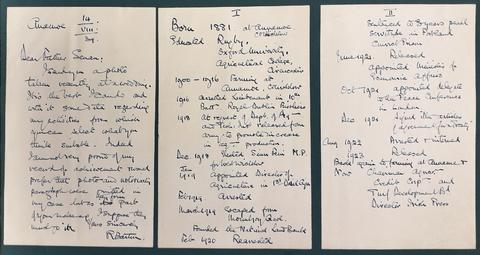 Annamoe 14/VIII/39
Dear Father Senan,
I send you a photo
taken recently at a wedding.
It is the best I could
with it some data regarding
my activities from which
you can select what you
think suitable. Indeed
I am not very proud of my
record of achievement & would
prefer the photo
paragraph
my case
Yours sincerely
R Barton
I
Born 1881 at Annamoe Co Wicklow
Educated Rugby,
Oxford University,
Agricultural College,
Cirencester
1900–1916 Farming at
Annamoe, Co Wicklow
1916 Lieutenant in 10th
Battn Royal Dublin Fusiliers
1918 At request of Dept. of Agr.
and Tech. Inst. Released from
army to promote increase
in production.
Dec. 1918 Elected Sinn Fein M.P.
for West Wicklow
1919 Appointed Director of
Agriculture in 1st Dail Eireann
Feb 1919 Arrested
March 1919 Escaped from
Mountjoy Gaol.
Founded the National Land Bank
Feb 1920 Rearrested
II
Sentenced to 3 years penal
servitude in Portland
Convict Prison
June 1921 Released
appointed Minister of
Economic Affairs
Oct 1921 appointed delegate
to the Peace Conference
in London
Dec 1921 Signed the "articles
of agreement for a treaty"
Aug 1922 Arrested & interned
1923 Released
Back again to farming at Annamoe &
Now Chairman Agricr
Credit Corp and
Turf Development Bd
Director Irish Press